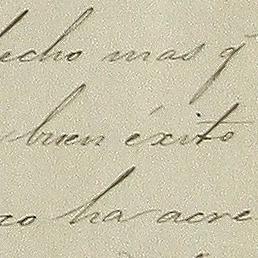 echo mas q
buen éxito
co ha acre